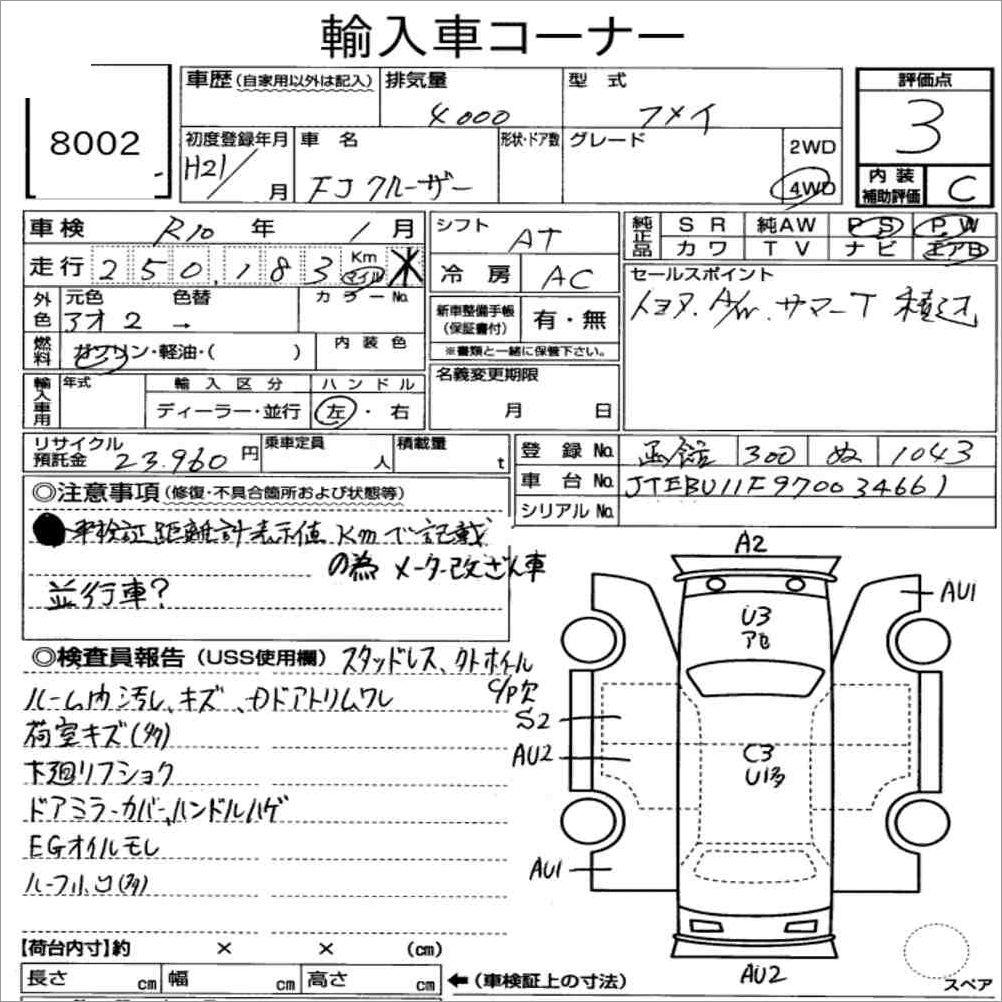 輸入車コーナー
8002
車歴(自家用以外は記入) 排気量 型式 評価点
4000 フメイ 3
初度登録年月 車名 形状・ドア数 グレード 2WD
H21/ 月 FJクルーザー 4WD 内装補助評価 C
車検 R10 年 1 月 シフト AT 純正品 SR 純AW PS PW
カワ TV ナビ エアB
走行 250,183 Km マイル ※ 冷房 AC
セールスポイント
トヨタ. A/W. サマーT 積込
外色 元色 色替 カラーNo.
アオ2 →
新車整備手帳(保証書付) 有・無
※書類と一緒に保管下さい。
燃料 ガソリン・軽油・( ) 内装色
輸入車用 年式 輸入区分 ハンドル
ディーラー・並行 左・右
名義変更期限
月 日
リサイクル預託金 23,960 円 乗車定員 人 積載量 t
登録No. 函館 300 ぬ 1043
車台No. JTEBU11F970034661
シリアルNo.
◎注意事項(修復・不具合箇所および状態等)
車検証距離計表示値Kmで記載
の為 メーター改ざん車
並行車?
◎検査員報告(USS使用欄) スタッドレス、クトホイル
C/P欠
ルーム内汚レ、キズ、Dドアトリムワレ
荷室キズ(多)
下廻リフショク
ドアミラーカバー、ハンドルハゲ
EGオイルモレ
ルーフ小凹(多)
A2
AU1
U3
アセ
S2
AU2
C3
U1多
AU1
AU2
スペア
【荷台内寸】約 × × (cm)
長さ cm 幅 cm 高さ cm ←(車検証上の寸法)